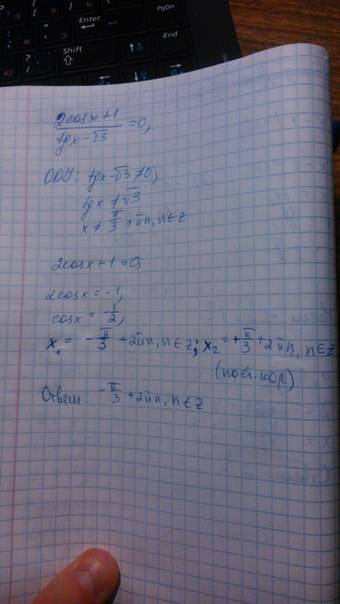 Enter
PgOn
Shift
End
2cosx+1
tgx-√3 =0,
ОДЗ: tgx-√3≠0,
tgx≠√3
x≠ π/3 + πn, n∈Z
2cosx+1=0,
2cosx=-1,
cosx= 1/2,
x₁= -π/3 +2πn, n∈Z; x₂=+π/3+2πn, n∈Z
Ответ: -π/3 +2πn, n∈Z